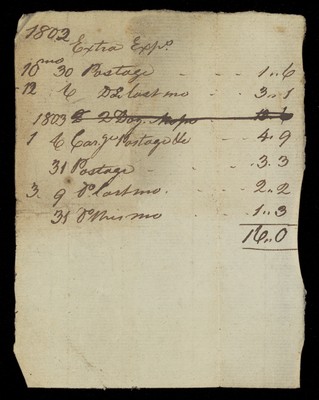 1802
Extra Exps
10mo 30 Postage 1..6
12 6 Do last mo 3..1
1803 2 Doz. Mops
1 6 Car.ge Postage &c 4..9
31 Postage 3..3
3. 9 Do last mo. 2..2
31 Do this mo 1..3
16..0